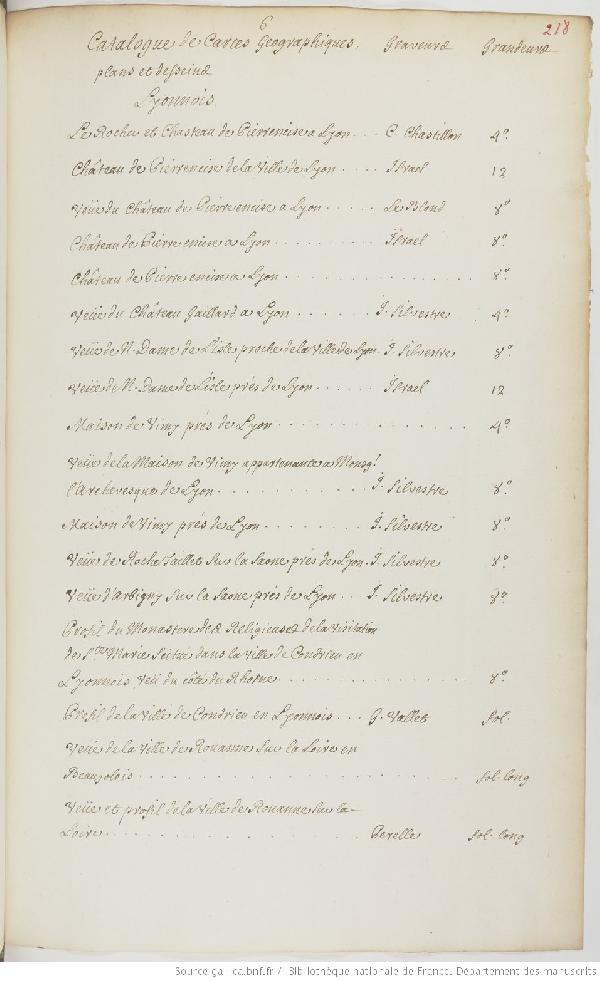 6
218
Catalogue de Cartes Geographiques, Graveurs Grandeurs
plans et desseins
Lyonnois
Le Rocher et Chasteau de Pierrencise a Lyon . . . C. Chastillon 4º.
Château de Pierrencise de la Ville de Lyon . . . . Israel 12
Veüe du Château de Pierre encise a Lyon . . . . . Le Blond 8º
Château de Pierre encise a Lyon . . . . . . . . Israel 8º.
Château de Pierre encise a Lyon . . . . . . . . . . . . . . . 8º.
Veüe du Château Gaillard a Lyon . . . . . . J. Silvestre 4º.
Veüe de N. Dame de L'isle proche de la Ville de Lyon. J. Silvestre 8º.
Veüe de N. Dame de L'isle prés de Lyon . . . . . . Israel 12
Maison de Vimy prés de Lyon . . . . . . . . . . . . . . . 4º.
Veüe de la Maison de Vimy appartenante a Monsgr.
l'Archevesque de Lyon . . . . . . . . . . . J. Silvestre 8º.
Maison de Vimy prés de Lyon . . . . . . . . J. Silvestre 8º.
Veüe de Roche Taillet sur la Saone prés de Lyon. J. Silvestre 8º.
Veüe d'Arbigny sur la Saone prés de Lyon . . . J. Silvestre 8º.
Profil du Monastere des Religieuses de la Visitation
de Ste. Marie Scitué dans la Ville de Condrieu en
Lyonnois veü du côté du Rhosne . . . . . . . . . . . . 8º.
Profil de la Ville de Condrieu en Lyonnois . . . G. Vallet fol.
Veüe de la Ville de Rouanne sur la Loire en
Beaujolois . . . . . . . . . . . . . . . . . . . . . . . fol. long
Veüe et profil de la Ville de Rouanne sur la
Loire . . . . . . . . . . . . . . . . . Perelle fol. long
Source gallica.bnf.fr / Bibliothèque nationale de France. Département des manuscrits.